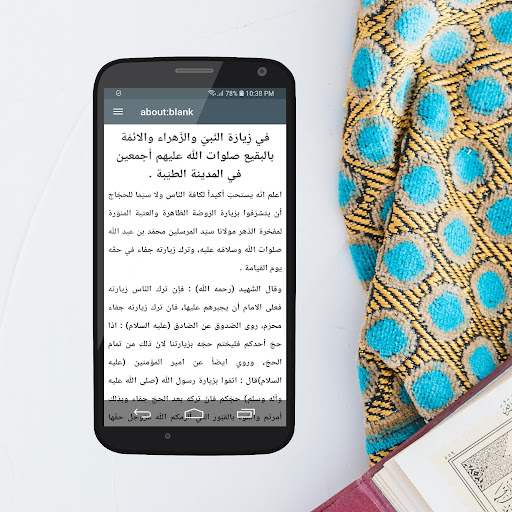 78% 10:38 PM
about:blank
في زيارة النّبيّ والزّهراء والائمّة
بالبقيع صلوات الله عليهم أجمعين
في المدينة الطيّبة .
اعلم انّه يستحبّ أكيداً لكافة الناس ولا سيّما للحجّاج
أن يتشرّفوا بزيارة الرّوضة الطّاهرة والعتبة المنوّرة
لمفخرة الدّهر مولانا سيّد المرسلين محمّد بن عبد الله
صلوات الله وسلامُه عليه، وترك زيارته جفاء في حقّه
يوم القيامة .
وقال الشّهيد (رحمه الله) : فإن ترك الناس زيارته
فعلى الامام أن يجبرهم عليها، فان ترك زيارته جفاء
محرّم، روى الصّدوق عن الصّادق (عليه السلام) : اذا
حجّ أحدكم فليختم حجّه بزيارتنا لانّ ذلك من تمام
الحجّ، وروي ايضاً عن امير المؤمنين (عليه
السلام)قال : اتمّوا بزيارة رسول الله (صلى الله عليه
وآله وسلم) حجّكم فانّ تركه بعد الحجّ جفاء وبذلك
أمرتم واتمّوا بالقبُور التي الزمكم الله عزّوجلّ حقّها